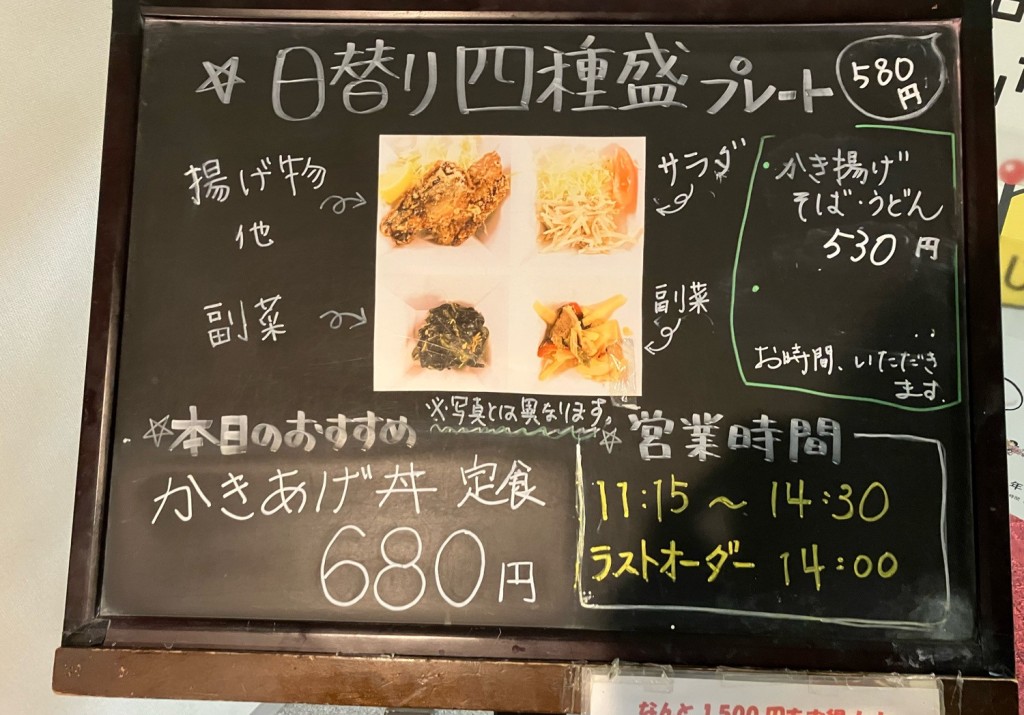 ☆日替り四種盛プレート
580
円
揚げ物
他
サラダ
副菜
副菜
・かき揚げ
そば・うどん
530円
・
お時間、いただき
ます。
※写真とは異なります。
☆本日のおすすめ
かきあげ丼 定食
680円
☆営業時間
11:15～14:30
ラストオーダー 14:00
なんと1,500円